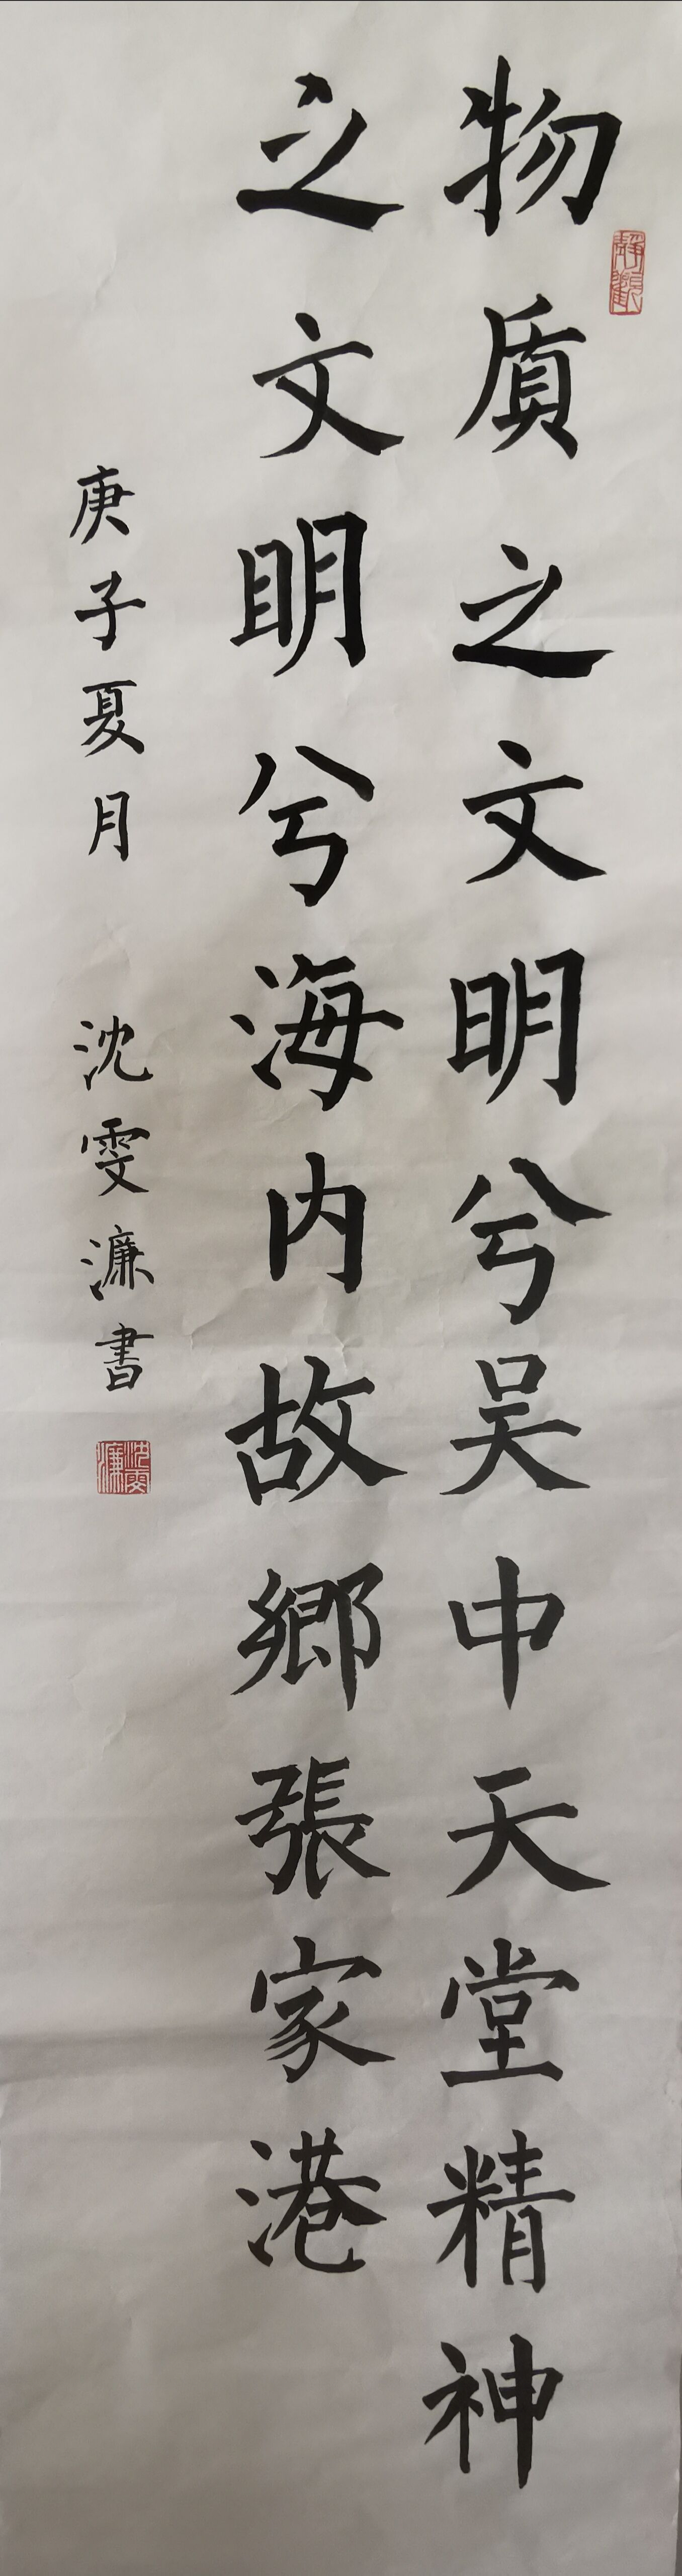 物质之文明兮吴中天堂精神
之文明兮海内故鄉張家港
庚子夏月 沈雯濂書
靜觀
沈雯濂